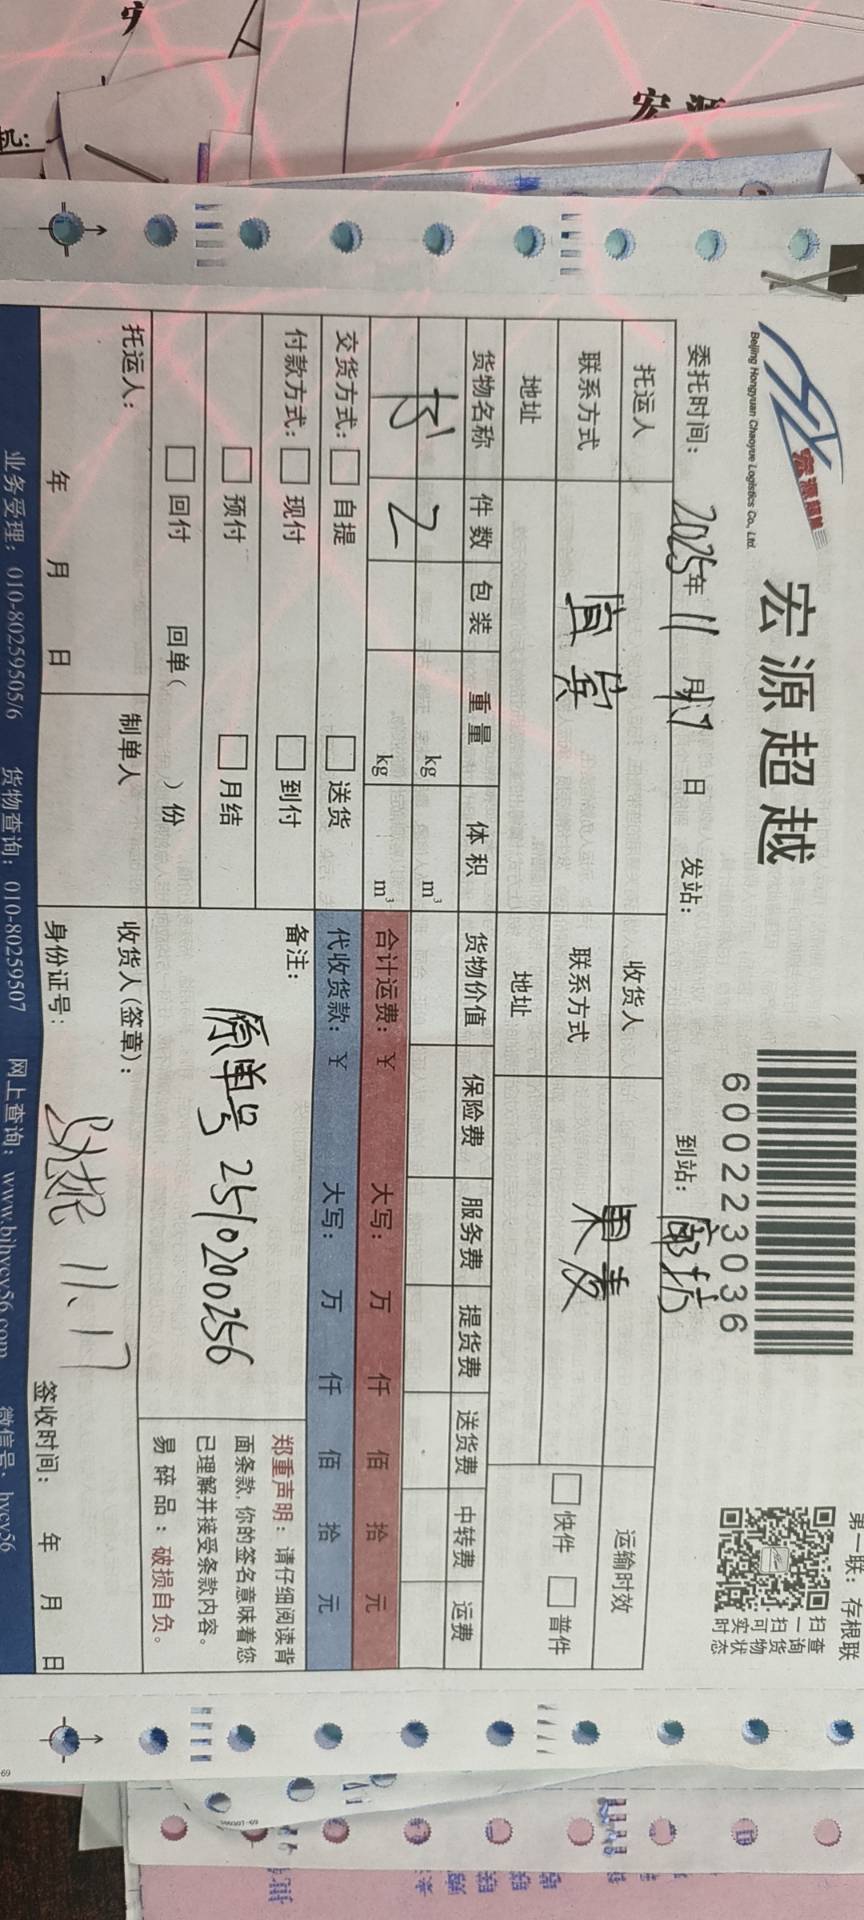 宏源
机:
第一联：存根联
宏源超越
Beijing Hongyuan Chaoyue Logistics Co., Ltd.
宏源超越
600223036
扫一扫可实时
查询货物状态
委托时间： 2025年 11 月 17 日 发站： 到站： 廊坊
托运人 收货人 运输时效
联系方式 宜宾 联系方式 果麦 快件 普件
地址 地址
货物名称 件数 包装 重量 体积 货物价值 保险费 服务费 提货费 送货费 中转费 运费
书 2 kg m³
kg m³ 合计运费：￥ 大写： 万 仟 佰 拾 元
交货方式： 自提 送货 代收货款：￥ 大写： 万 仟 佰 拾 元
付款方式： 现付 到付 备注：
预付 月结 原单号 2510200256
回付 回单( )份
郑重声明：请仔细阅读背
面条款,你的签名意味着您
已理解并接受条款内容。
易碎品：破损自负。
托运人： 制单人 收货人(签章)：
11.17
年 月 日 身份证号： 签收时间： 年 月 日
业务受理：010-80259505/6 货物查询：010-80259507 网上查询：www.bjhycy56.com 微信号：hycy56